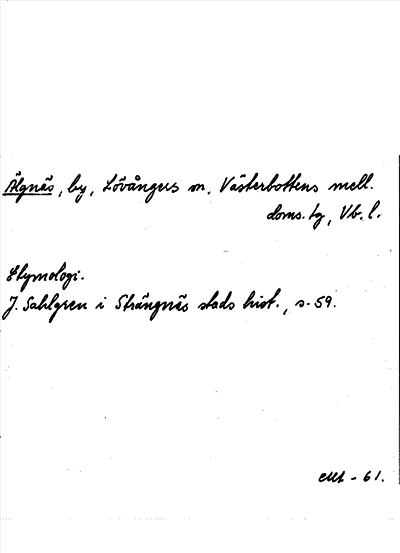 Älgnäs, by, Lövångers sn, Västerbottens mell.
doms. tg, Vb. l.
Etymologi.
J. Sahlgren i Strängnäs stads hist., s. 59.
-61.